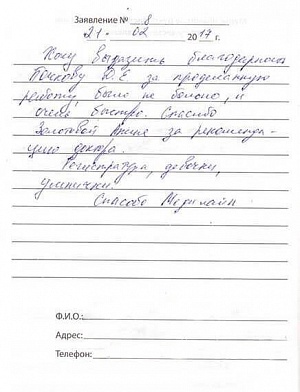 Заявление № 8
21. 02 2017 г.
Хочу выразить благодарность
Почкову Д.Е за проделанную
работу, было не больно, и
очень быстро. Спасибо
Золотовой Инне за рекоменда-
цию доктора.
Регистратура, девочки,
умнички.
Спасибо Мерилайн
Ф.И.О.:
Адрес:
Телефон: